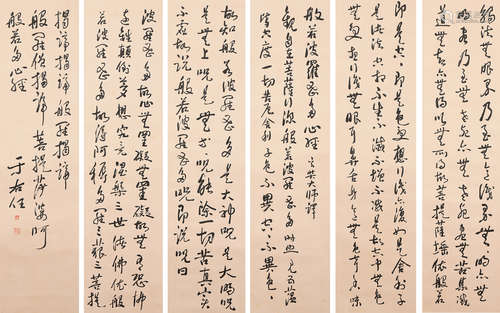 般若波羅蜜多心經 玄奘大師譯
觀自在菩薩行深般若波羅蜜多時照見五蘊
皆空度一切苦厄舍利子色不異空空不異色色
即是空空即是色受想行識亦復如是舍利子
是諸法空相不生不滅不垢不淨不增不減是故空中無色
無受想行識無眼耳鼻舌身意無色聲香味
觸法無眼界乃至無意識界無無明亦無
無明盡乃至無老死亦無老死盡無苦集滅
道無智亦無得以無所得故菩提薩埵依般若
波羅蜜多故心無罣礙無罣礙故無有恐怖
遠離顛倒夢想究竟涅槃三世諸佛依般
若波羅蜜多故得阿耨多羅三藐三菩提
故知般若波羅蜜多是大神咒是大明咒
是無上咒是無等等咒能除一切苦真實
不虛故說般若波羅蜜多咒即說咒曰
揭諦揭諦般羅揭諦
般羅僧揭諦菩提薩婆訶
般若多心經
于右任